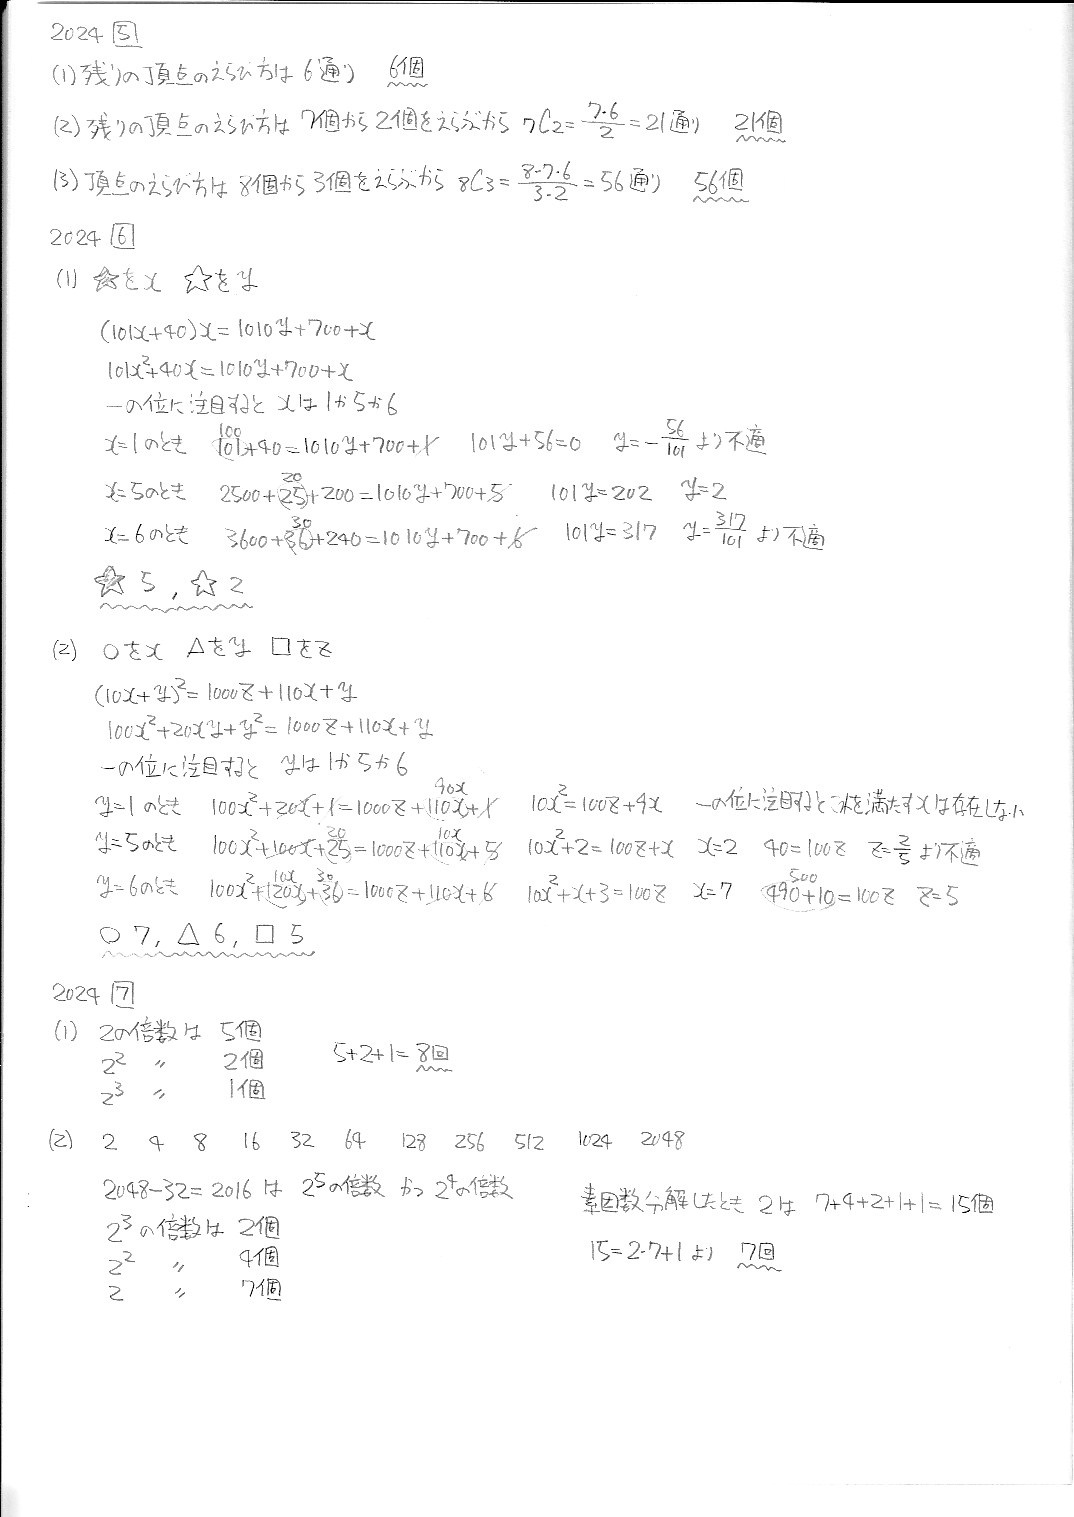 2024 5
(1) 残りの頂点のえらび方は 6通り 6個
(2) 残りの頂点のえらび方は 7個から2個をえらぶから 7C2=7・6/2=21通り 21個
(3) 頂点のえらび方は 8個から3個をえらぶから 8C3=8・7・6/3・2=56通り 56個
2024 6
(1) ★をx ☆をy
(101x+40)x=1010y+700+x
101x²+40x=1010y+700+x
一の位に注目すると xは1か5か6
x=1のとき 100 101+40=1010y+700+1 101y+56=0 y=-56/101 より不適
x=5のとき 2500+25+200=1010y+700+5 20 101y=202 y=2
x=6のとき 3600+36+240=1010y+700+6 30 101y=317 y=317/101 より不適
★ 5 , ☆ 2
(2) ○をx △をy □をz
(10x+y)²=1000z+110x+y
100x²+20xy+y²=1000z+110x+y
一の位に注目すると yは1か5か6
y=1のとき 100x²+20x+1=1000z+110x+1 90x 10x²=100z+9x 一の位に注目するとこれを満たすxは存在しない
y=5のとき 100x²+100x+25=1000z+110x+5 20 10x 10x²+2=100z+x x=2 40=100z z=2/5 より不適
y=6のとき 100x²+120x+36=1000z+110x+6 10x 30 10x²+x+3=100z x=7 490+10=100z 500 z=5
○ 7, △ 6, □ 5
2024 7
(1) 2の倍数は 5個
2² 〃 2個 5+2+1=8回
2³ 〃 1個
(2) 2 4 8 16 32 64 128 256 512 1024 2048
2048-32=2016 は 2⁵の倍数 かつ 2⁴の倍数 素因数分解したとき 2は 7+4+2+1+1=15個
2³の倍数は 2個
2² 〃 4個 15=2・7+1 より 7回
2 〃 7個